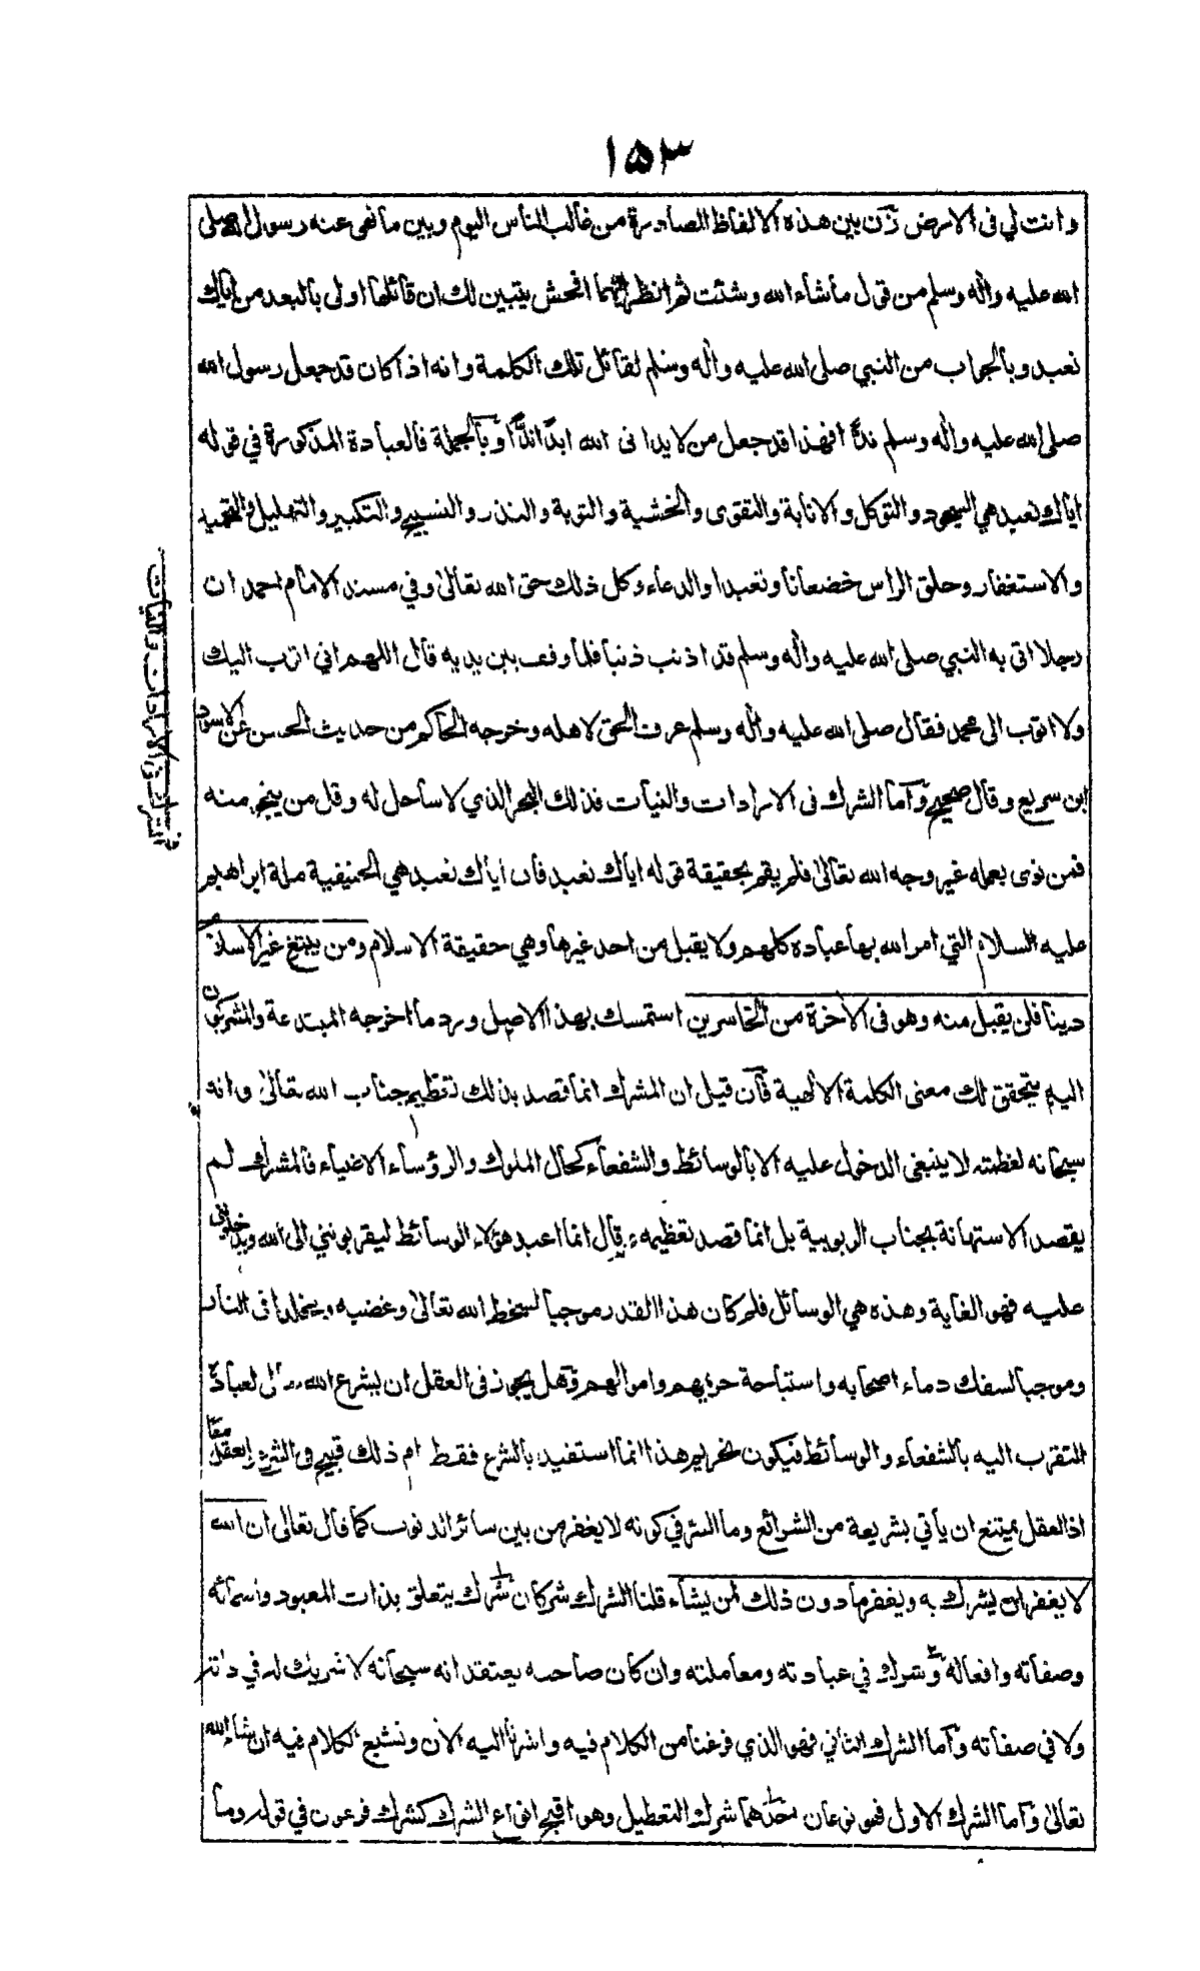 ١٥٣
وانت لي فى الارض زن بين هذه الالفاظ الصادرة من غالب الناس اليوم وبين ما نهى عنه رسول الله صلى
الله عليه واله وسلم من قول ما شاء الله وشئت ثم انظر ايهما افحش يتبين لك ان قائلها اولى بالبعد من اياك
نعبد وبالجواب من النبي صلى الله عليه واله وسلم لقائل تلك الكلمة وانه اذا كان قد جعل رسول الله
صلى الله عليه واله وسلم ندًّا فهذا قد جعل من لا يدانى الله ابدًا ندًّا وبالجملة فالعبادة المذكورة في قوله
اياك نعبد هي السجود والتوكل والانابة والتقوى والخشية والتوبة والنذر والتسبيح والتكبير والتهليل والتحميد
والاستغفار وحلق الراس خضعانا وتعبدا والدعاء وكل ذلك حق الله تعالى وفي مسند الامام احمد ان
رجلا اتى به النبي صلى الله عليه واله وسلم قد اذنب ذنبا فلما وقف بين يديه قال اللهم اني اتوب اليك
ولا اتوب الى محمد فقال صلى الله عليه واله وسلم عرف الحق لاهله وخرجه الحاكم من حديث الحسن عن الاسود
ابن سريع وقال صحيح واما الشرك فى الارادات والنيات فذلك البحر الذي لا ساحل له وقل من ينجو منه
فمن نوى بعمله غير وجه الله تعالى فلم يقم بحقيقة قوله اياك نعبد فان اياك نعبد هي الحنيفية ملة ابراهيم
عليه السلام التي امر الله بها عباده كلهم ولا يقبل من احد غيرها وهي حقيقة الاسلام ومن يبتغ غير الاسلام
دينا فلن يقبل منه وهو فى الاخرة من الخاسرين استمسك بهذا الاصل ورد ما اخرجه المبتدعة والمشركون
اليه يتحقق لك معنى الكلمة الالهية فان قيل ان المشرك انما قصد بذلك تعظيم جناب الله تعالى وانه
سبحانه لعظمته لا ينبغى الدخول عليه الا بالوسائط والشفعاء كحال الملوك والرؤساء الاغنياء فالمشرك لم
يقصد الاستهانة بجناب الربوبية بل انما قصد تعظيمه وقال انما اعبد هؤلاء الوسائط ليقربونني الى الله ويدخلوني
عليه فهو الغاية وهذه هي الوسائل فلم كان هذا القدر موجبا لسخط الله تعالى وغضبه ويخلد فى النار
وموجبا لسفك دماء اصحابه واستباحة حريمهم واموالهم وهل يجوز فى العقل ان يشرع الله لعباده
التقرب اليه بالشفعاء والوسائط فيكون تحريم هذا انما استفيد بالشرع فقط ام ذلك قبيح فى الشرع والعقل معا
اذ العقل يمتنع ان يأتي بشريعة من الشرائع وما السر في كونه لا يغفر من بين سائر الذنوب كما قال تعالى ان الله
لا يغفر ان يشرك به ويغفر ما دون ذلك لمن يشاء قلنا الشرك شركان شرك يتعلق بذات المعبود واسمائه
وصفاته وافعاله وشرك في عبادته ومعاملته وان كان صاحبه يعتقد انه سبحانه لا شريك له في ذاته
ولا في صفاته واما الشرك الثاني فهو الذي فرغنا من الكلام فيه واشرنا اليه الان ونشبع الكلام فيه ان شاء الله
تعالى واما الشرك الاول فهو نوعان احدهما شرك التعطيل وهو اقبح انواع الشرك كشرك فرعون في قوله وما
الشرك فى الارادات والنيات